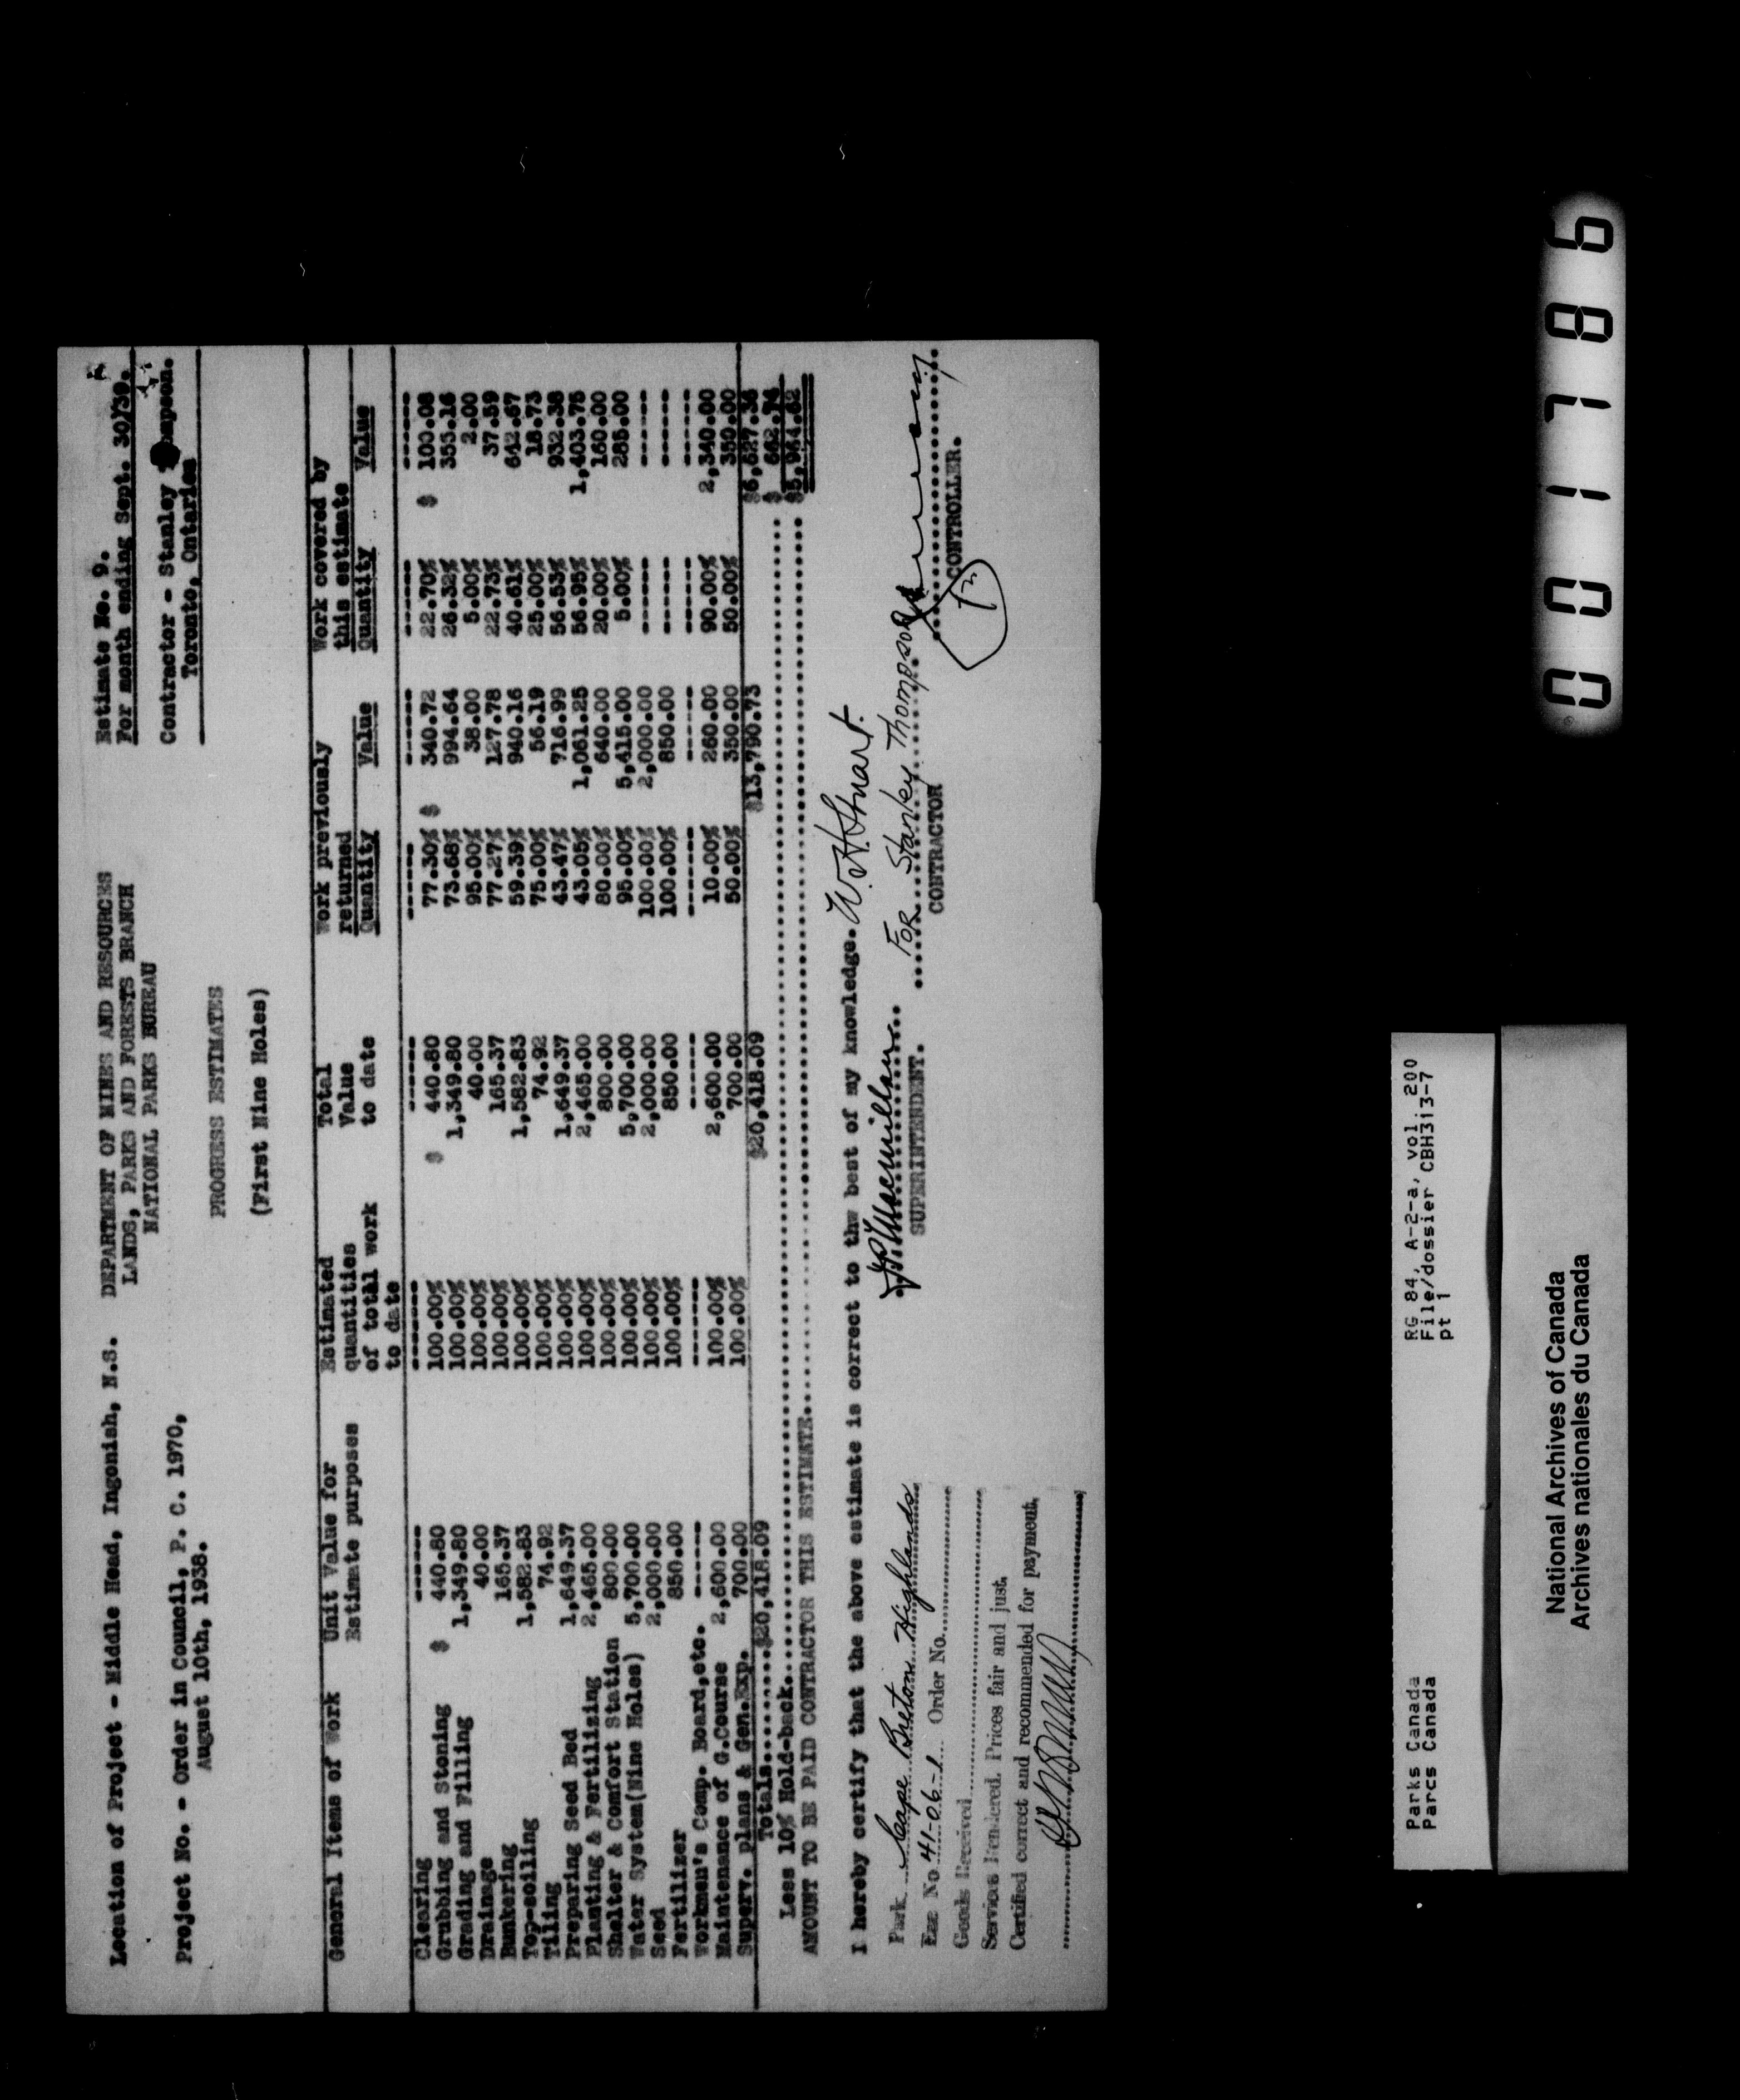 Location of Project - Middle Head, Ingonish, N.S.
DEPARTMENT OF MINES AND RESOURCES
LANDS, PARKS AND FORESTS BRANCH
NATIONAL PARKS BUREAU
Estimate No. 9.
For month ending Sept. 30/39.
Project No. - Order in Council, P. C. 1970,
August 10th, 1938.
PROGRESS ESTIMATES
(First Nine Holes)
Contractor - Stanley
Toronto, Ontario
General Items of Work | Unit Value for Estimate purposes | Estimated quantities of total work to date | Total Value to date | Work previously returned Quantity | Value | Work covered by this estimate Quantity | Value
Clearing ------ ------ ------ ------ ------ ------ ------
Grubbing and Stoning $ 440.80 100.00% $ 440.80 77.30% $ 340.72 22.70% $ 100.08
Grading and Filling 1,349.80 100.00% 1,349.80 73.68% 994.64 26.32% 355.16
Drainage 40.00 100.00% 40.00 95.00% 38.00 5.00% 2.00
Bunkering 165.37 100.00% 165.37 77.27% 127.78 22.73% 37.59
Top-soiling 1,582.83 100.00% 1,582.83 59.39% 940.16 40.61% 642.67
Tiling 74.92 100.00% 74.92 75.00% 56.19 25.00% 18.73
Preparing Seed Bed 1,649.37 100.00% 1,649.37 43.47% 716.99 56.53% 932.38
Planting & Fertilizing 2,465.00 100.00% 2,465.00 43.05% 1,061.25 56.95% 1,403.75
Shelter & Comfort Station 800.00 100.00% 800.00 80.00% 640.00 20.00% 160.00
Water System(Nine Holes) 5,700.00 100.00% 5,700.00 95.00% 5,415.00 5.00% 285.00
Seed 2,000.00 100.00% 2,000.00 100.00% 2,000.00 ------ ------
Fertilizer 850.00 100.00% 850.00 100.00% 850.00 ------ ------
Workmen's Comp. Board,etc. ------ ------ ------ ------ ------ ------ ------
Maintenance of G.Course 2,600.00 100.00% 2,600.00 10.00% 260.00 90.00% 2,340.00
Superv. plans & Gen.Exp. 700.00 100.00% 700.00 50.00% 350.00 50.00% 350.00
Totals........$20,418.09 $20,418.09 $13,790.73 $6,627.36
Less 10% Hold-back........ $ 662.74
AMOUNT TO BE PAID CONTRACTOR THIS ESTIMATE........ $5,964.62
I hereby certify that the above estimate is correct to thw best of my knowledge. W. H. Stuart.
Park Cape Breton Highlands
SUPERINTENDENT.
For Stanley Thompson
CONTRACTOR
CONTROLLER.
No 41-06-1 Order No.
Goods Received
Services Rendered. Prices fair and just.
Certified correct and recommended for payment.
Parks Canada
Parcs Canada
RG 84, A-2-a, vol. 200
File/dossier CBH313-7
pt 1
National Archives of Canada
Archives nationales du Canada
001786